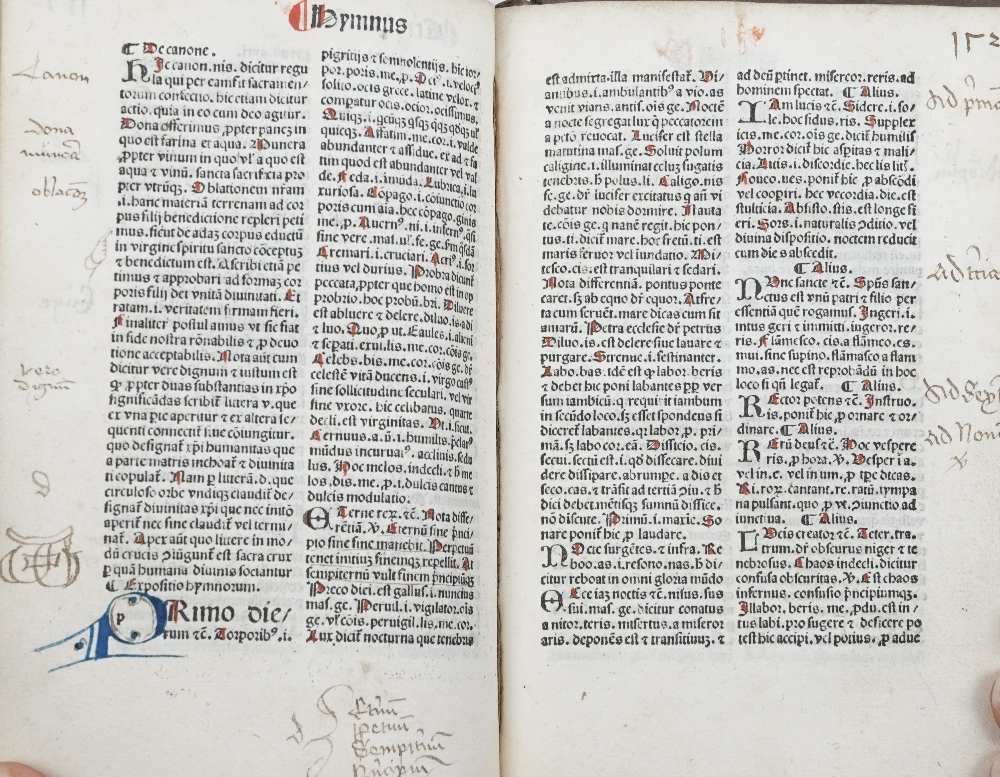 Hymnus
¶ De canone.
Hic canon.nis. dicitur regu
la qui per eam fit sacramen/
torum confectio. hic etiam dicitur
actio. quia in eo cum deo agitur.
Dona offerimus ꝓpter panez in
quo est farina et aqua. Munera
ꝓpter vinum in quo vl' a quo est
aqua & vinū. sancta sacrificia pro
pter vtrūqꝫ. Oblationem nr̄am
.i. hanc materiam terrenam ad cor
pus filij benedictione repleri peti
mus. sicut de adaꝫ corpus eductū
in virgine spiritu sancto cōceptuꝫ
& benedictum est. Ascribi etiā pe
timus & approbari ad formaꝫ cor
poris filij dei vnitā diuinitati. Et
ratam .i. veritatem firmam fieri.
Finaliter postulamus vt sic fiat
in fide nostra rōnabilis & ꝓ deuo
tione acceptabilis. Nota aūt cum
dicitur vere dignum & iustum est
ꝙ ꝓpter duas substantias in xp̄o
significādas scribit̄ littera v. que
ex vna pte aperitur & ex altera se/
quenti connectit̄ siue cōiungitur.
quo designat̄ xp̄i humanitas que
a parte matris inchoat̄ & diuinita
ti copulat̄. Nam p litterā.d. que
circuloso orbe vndiqꝫ claudit̄ de/
signat̄ diuinitas xp̄i que nec initō
aperit̄ nec fine claudit̄ vel termi/
nat̄. Apex aūt quo littere in mo/
dū crucis ↄiūgunt̄ est sacra crux
ꝑ quā humana diuinis sociantur
¶ Expositio hymnorum.
PRimo die/
rum ⁊c̄. Torporibꝰ .i.
pigritijs & somnolentijs. hic tor/
por.poris.me.ꝓ.
solito. ocis grece. latine velox. &
compatur ocis.ocior.ocissimus.
quicqꝫ. Affatim.me.cor.i.valde
abundanter & assidue. et ad & fa
tim quod est abundanter vel val
de. Feda.i.īmūda. Lubrica.i.lu
xuriosa. Cōpago.i.coiunctio cor
poris cum aīa. hec cōpago.ginis
me.ꝓ. Auerni.
sine vere.
Cremari.i.cruciari.
tius vel durius. Probra dicunt̄
peccata. ꝓpter que homo est in op
probrio. hoc probū.bri. Diluere
est abluere & delere.
& luo. Quo.ꝓ ut. Exules.i.alieni
& sepati.exul.lis.me.cor.cōis ge.
Celebs.bis.me.cor.cōis.ge.
celestē vitā ducens.i.virgo
sine sollicitudine seculari. vel vir
sine vxore. hic celibatus.
decli.est virginitas. Vt.i.sicut.
Cernuus.a.ū.i.humilis.
mūdus incuruaꝰ. acclinis.
lus. Hoc melos.indecli.& h̄ me
los.dis.me.ꝓ.i.dulcis cantus &
dulcis modulatio.
ETerne reꝝ.⁊c̄. Nota diffe/
rētiā.ꝟ. Eternū sine ꝑnci/
pio sine fine manebit. Perpetuū
tenet initiuꝫ finemqꝫ repellit. At
sempiternū vult finem ꝑncipiūqꝫ
Preco diei.est gallus.i.nuncius
mas.ge. Peruil.i.vigilator.ois
ge. v'l cōis.peruigil.lis.me.cor.
Lux dicit̄ nocturna que tenebris
est admixta.illa manifestat̄. Vi/
antibus.i.ambulantibꝰ a vio.as
venit vians.antis.ois ge. Noctē
a nocte segregat lux ꝗ peccatorem
a pctō reuocat. Lucifer est stella
matutina mas.ge. Soluit polum
caligine.i.illuminat celuꝫ fugatis
tenebris. h̄ polus.li. Caligo.nis
fe.ge. dr̄ lucifer excitatus ꝗ an̄ vi
debatur nobis dormire. Nauta
te.cōis ge. ꝗ nanē regit. hic pon/
tus.ti.dicit̄ mare. hoc fretū.ti.est
maris feruor vel iundatio. Mi/
tesco.cis.est tranquilari & sedari.
Nota differentiā. pontus ponte
caret. sꝫ ab equo dr̄ equor. Asfre/
ta cum feruēt. mare dicas cum sit
amarū. Petra ecclesie dr̄ petrus
Diluo.is.est delere siue lauare &
purgare. Strenue.i.festinanter.
Labo.bas.idē est ꝙ labor.beris
& debet hic poni labantes pp̄ ver
sum iambicū. ꝗ requirit iambum
in secūdo loco. sꝫ esset spondeus si
diceret̄ labantes. qꝛ labor. ꝓ. pri/
mā. sꝫ labo cor. eā. Dissicio.cis.
secui.sectū est.i.qd̄ dissecare.diui
dere dissipare. abrumpe. a dis et
seco.cas. & trāsit ad tertiā ↄiu. & h̄
dici debet. metisqꝫ summū dissice.
nō discute. Primū.i.maxie. So
nare ponit̄ hic ꝓ laudare.
NOcte surgētes. & infra. Re
boo.as.i.resono.nas. h̄ di/
citur reboat in omni gloria mūdo
ECce iaꝫ noctis ⁊c̄. nisus.sus
sui.mas.ge. dicitur conatus
a nitor.teris. misertus.a miseror
aris. deponēs est & transitiuuꝫ. &
ad deū ꝑtinet. misercor.reris.ad
hominem spectat. ¶ Alius.
IAm lucis ⁊c̄. Sidere.i.so/
le. hoc sidus.ris. Supplex
icis.me.cor.ois ge. dicit̄ humilis
Horror dicit̄ hic aspitas & mali/
cia. Litis.i.discordie. hec lis litꝭ.
Fouco.ues.ponit̄ hic ꝓ abscōdi
vel cooperi. hec vecordia.die.est
stulticia. Absisto.stis.est longe fi
eri. Sors.i.naturalis ↄditio. vel
diuina dispositio. noctem reducit
cum dies abscedit.
¶ Alius.
NUnc sancte ⁊c̄. Spūs san/
ctus est vnū patri & filio per
essentiā quē rogamus. Ingeri.i.
intus geri & immitti. iugeror.re/
ris. Flāmesco.cis.a flāmeo.es.
mui. sine supino. flāmasco a flam
mo.as. nec est reprobādū in hoc
loco si qn̄ legat̄. ¶ Alius.
REctor potens ⁊c̄. Instruo.
is.ponit̄ hic ꝓ ornare & or/
dinare. ¶ Alius.
REꝝ deus ⁊c̄. Hoc vespere
ris. ꝓ hora.ꝟ. Vesper i a.
vel in e. vel in um. ꝓ tpe dicas.
Ni.roꝝ.cantant.re.ratū.tympa
na pulsant. quo ꝓ vt ↄiunctio ad
iunctiua. ¶ Alius.
LUcis creator ⁊c̄. Teter.tra.
trum. dr̄ obscurus niger & te
nebrosus. Chaos indecli.dicitur
confusa obscuritas. ꝟ. Est chaos
infernus. confusio ꝑncipiumqꝫ.
Illabor.beris.me.ꝓdu.est in/
tus labi. pro fugere & desicere po
test hic accipi. vel potius. ꝓ adue
Canon
dona
munera
oblacōꝫ
vere
dignū
d
Eternū
ꝑpetuū
Sempitnū
Principiū
Ad pmā
Ad tciā
Ad Sext
Ad Nonā